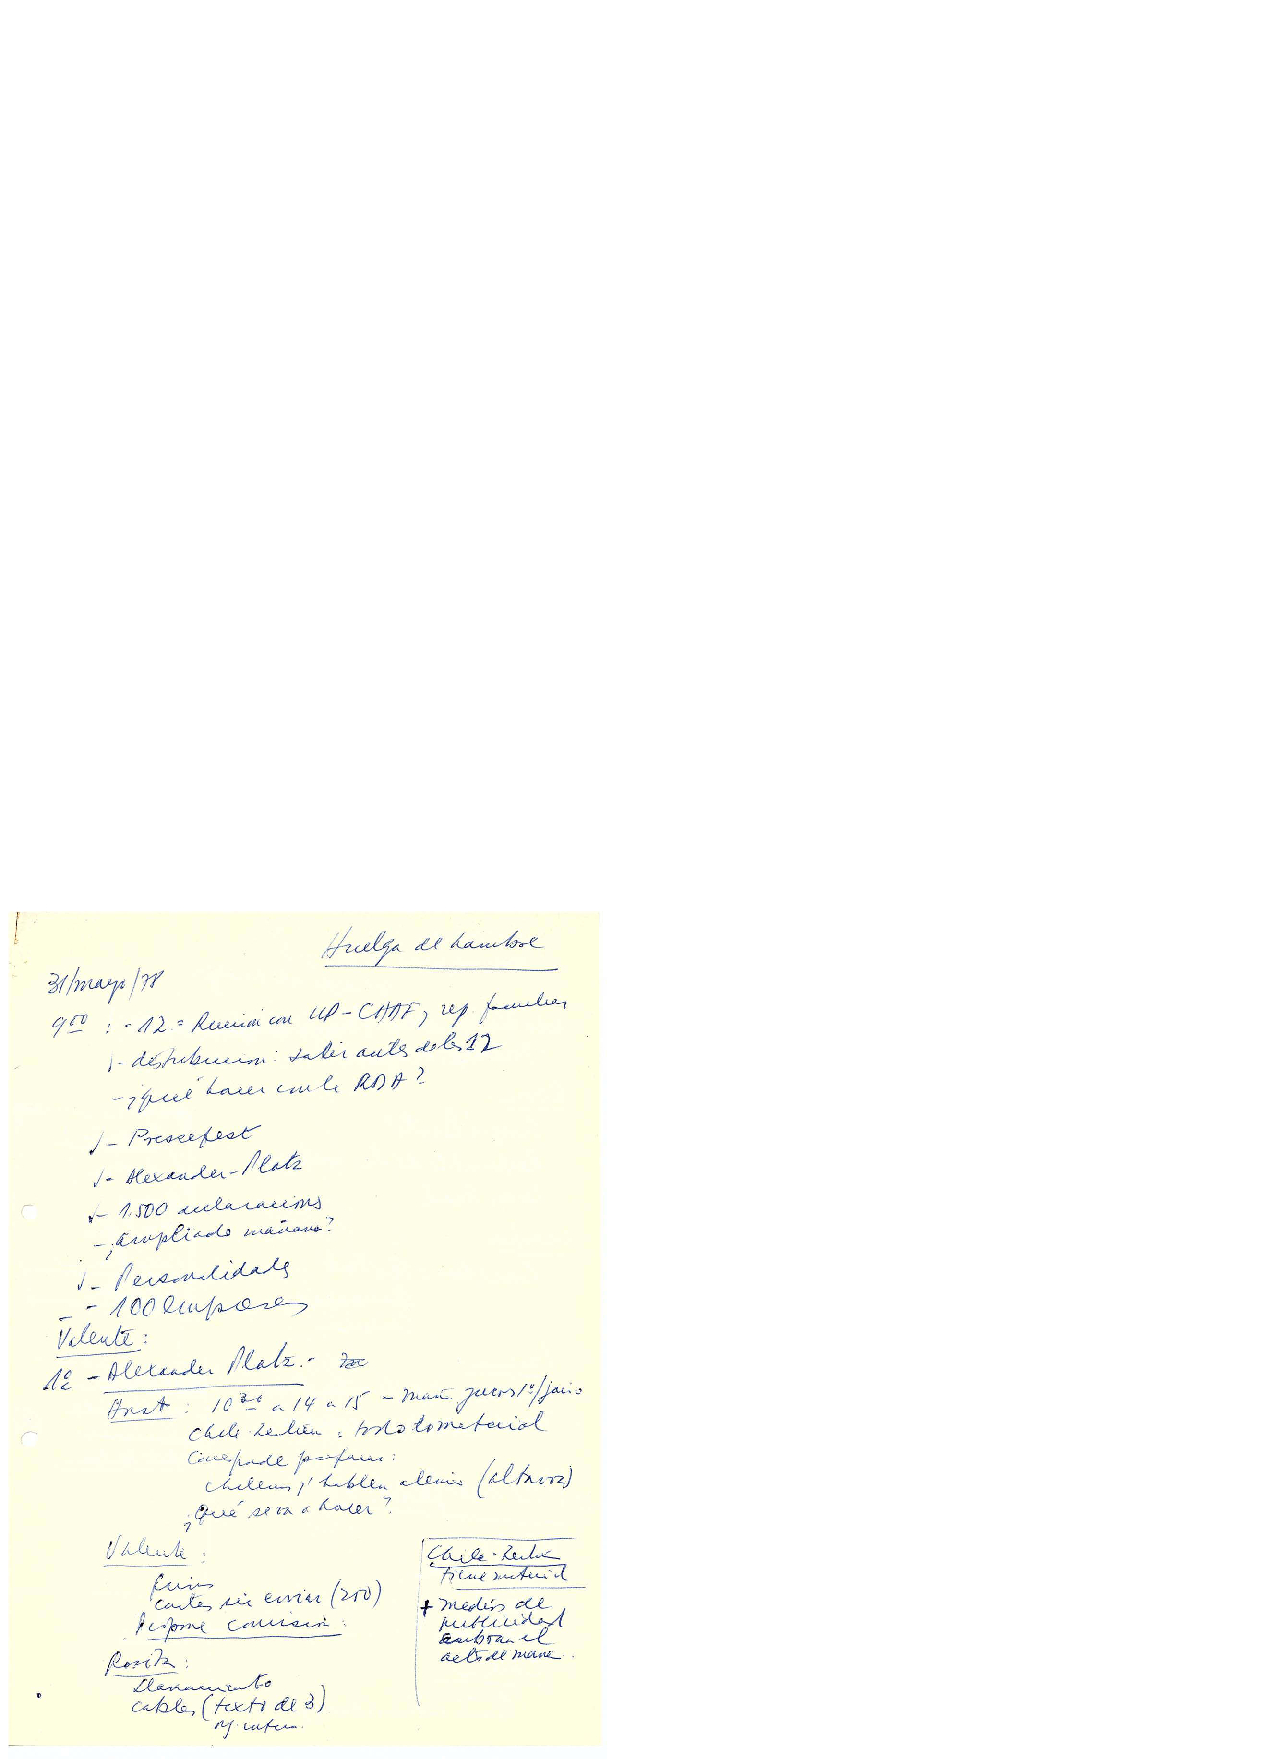 Huelga de hambre
31/mayo/78
9⁰⁰ : - 12 = Reunión con UP - CHAF, rep. familias
- distribución: salir antes de las 12
- ¿qué hacer con la RDA?
√ - Pressefest
√ - Alexander-Platz
√ - 1.500 declaraciones
- ¿Ampliado mañana?
√ - Personalidades
- 100 Empresas
Valente:
12 - Alexander Platz. -
: 10³⁰ a 14 a 15 - mañ. jueves 1º/junio
Chile-Zentrum : todo el material
chilenos q' hablen alemán (altavoz)
¿Qué se va a hacer?
Valente :
firmas
cartas sin enviar (200)
Propone comisión :
Rosita :
Llamamiento
cables (texto de 3)
Chile-Zentrum
tiene material
+ medios de
publicidad
cubran el
acto de mañ.